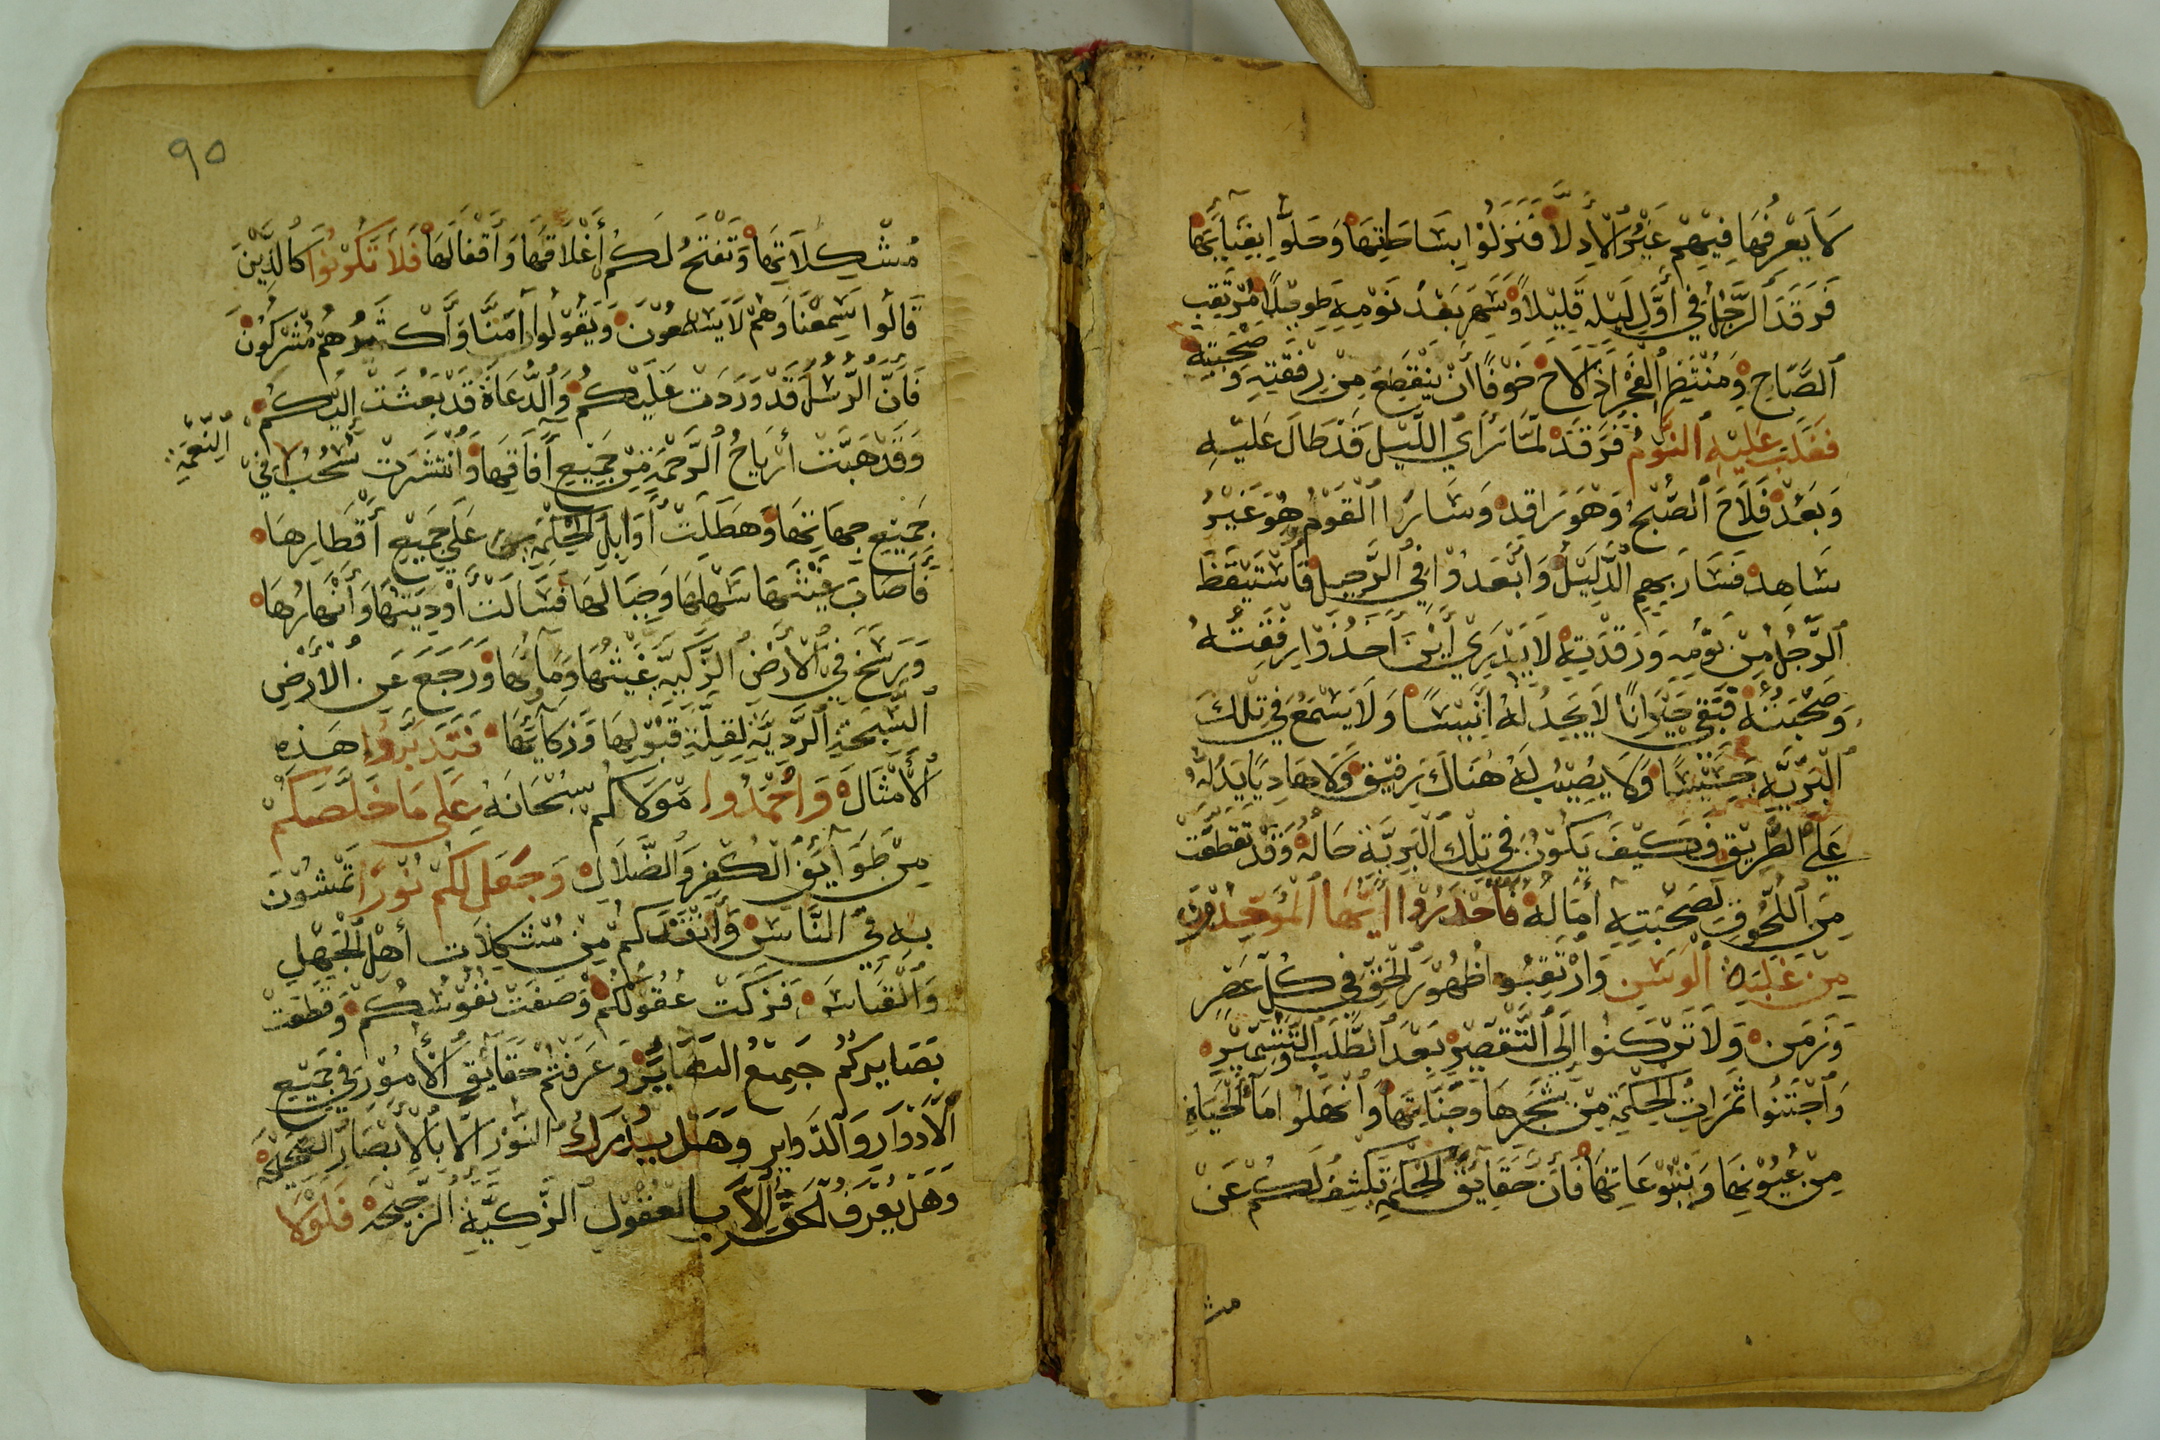 لَا يَعْرِفُهَا فِيهِمْ غَيْرُ الْأَدِلَّا فَنَزَلُوا بِسَاحَتِهَا وَحَلُّوا بِفَيَابِيهَا
فَرَقَدَ الرَّجُلُ فِي أَوَّلِ لَيْلِهِ قَلِيْلًا وَسَهِرَ بَعْدَ نَوْمِهِ طَوِيْلًا مُرْتَقِب
الصَّبَاحِ وَمُنْتَظِرَ الْفَجْرِ إِذَا لَاحَ خَوْفًا أَنْ يَنْقَطِعَ مِنْ رِفْقَتِهِ وَصُحْبَتِهِ
فَغَلَبَ عَلَيْهِ النَّوْمُ فَرَقَدَ لَمَّا رَأَي اللَّيْلَ قَدْ طَالَ عَلَيْهِ
وَبَعُدَ فَلَاحَ الصُّبْحُ وَهُوَ رَاقِد وَسَارَ الْقَوْمُ وَهُوَ غَيْرُ
سَاهِد فَسَارَ بِهِمِ الدَّلِيْلُ وَأَبْعَدُوْا فِي الرَّحِيْلِ فَاسْتَيْقَظَ
الرَّجُلُ مِنْ نَوْمِهِ وَرَقْدَتِهِ لَا يَدْرِيْ أَيْنَ أَخَذُوْا رِفْقَتُهُ
وَصُحْبَتُهُ فَبَقِيَ حَيْرَانًا لَا يَجِدُ لَهُ أَنِيْسًا وَلَا يَسْمَعُ فِي تِلْكَ
الْبَرِّيَّهِ حَسِيْسًا وَلَا يُصِيْبُ لَهُ هُنَاكَ رَفِيْق وَلَا هَادِيًا يَدُلُّهُ
عَلَى الطَّرِيْقِ فَكَيْفَ يَكُوْنُ فِي تِلْكَ الْبَرِيَّةِ حَالُهُ وَقَدْ تَقَطَّعَتْ
مِنَ اللُّحُوقِ لِصُحْبَتِهِ أَمَالُهُ فَاحْذَرُوْا أَيُّهَا الْمُوَحِّدُوْنَ
مِنْ غَلَبَةِ الْوَسَنِ وَارْتَقِبُوا ظُهُوْرَ الْحَقِّ فِي كُلِّ عَصْرٍ
وَزَمَنٍ وَلَا تَرْكَنُوا إِلَى التَّقْصِيْرِ بَعْدَ الطَّلَبِ وَالتَّشْمِيْرِ
وَاجْتَنُوا ثَمَرَاتِ الْحِكْمَةِ مِنْ شَجَرِهَا وَجَنَّاتِهَا وَانْهَلُوا مَاءَ الْحَيَاةِ
مِنْ عُيُوْنِهَا وَيَنْبُوْعَاتِهَا فَإِنَّ حَقَايِقَ الْحِكْمَةِ تَكْشِفُ لَكُمْ عَنْ
مش
٩٥
مُشْكِلَاتِهَا وَتَفْتَحُ لَكُمْ أَغْلَاقَهَا وَأَقْفَالَهَا فَلَا تَكُوْنُوا كَالَّذِيْنَ
قَالُوا سَمِعْنَا وَهُمْ لَا يَسْمَعُوْنَ وَيَقُوْلُوا آمَنَّا وَأَكْثَرُهُمْ مُشْرِكُوْنَ
فَأَنَّ الرُّسُلَ قَدْ وَرَدَتْ عَلَيْكُمْ وَالدُّعَاةَ قَدْ بَعُثَتْ إِلَيْكُمْ
وَقَدْ هَبَّتْ أَرْيَاحُ الرَّحْمَةِ مِنْ جَمِيْعِ آفَاقِهَا وَانْتَشَرَتْ سُحُبُ النِّعْمَةِ فِيْ
جَمِيْعِ جِهَاتِهَا وَهَطَلَتْ أَوَابِلُ الْحِكْمَةِ عَلَي جَمِيْعِ أَقْطَارِهَا
فَأَصَابَ غَيْثُهَا سَهْلَهَا وَجِبَالَهَا فَسَالَتْ أَوْدِيَتُهَا وَأَنْهَارُهَا
وَرَسَخَ فِي الْأَرْضِ الزَّكِيَّةِ غَيْثُهَا وَمَاؤُهَا وَرَجَعَ عَنِ الْأَرْضِ
السَّبِخَةِ الرَّدِيَّةِ لِقِلَّةِ قَبُوْلِهَا وَزَكَائِهَا فَتَدَبَّرُوا هَذِهِ
الْأَمْثَالَ وَاحْمُدُوا مَوْلَاكُم سُبْحَانَهُ عَلَى مَا خَلَّصَكُمْ
مِنْ طَوَايِفِ الْكُفْرِ وَالضَّلَالِ وَجَعَلَ لَكُمْ نُوْرًا تَمْشُوْنَ
بِهِ فِي النَّاسِ وَأَنْقَذَكُمْ مِنْ مُشْكِلَاتِ أَهْلِ الْجَهْلِ
وَالْقِيَاسِ فَزَكَتْ عُقُوْلُكُمْ وَصَفَتْ نُفُوْسُكُمْ وَقَطَعَتْ
بَصَايِرُكُمْ جَمِيْعَ الْبَصَايِرِ وَعَرَفْتُمْ حَقَايِقَ الْأُمُوْرِ فِي جَمِيْعِ
الْأَدْوَارِ وَالدَّوَايِرِ وَهَلْ يُدْرَكُ النُّوْرُ إِلَّا بِالْأَبْصَارِ الصَّحِيْحَة
وَهَلْ يُعْرَفُ الْحَقُّ إِلَّا بِالْعُقُوْلِ الزَّكِيَّةِ الرَّجِيْحَة فَلَوْلَا